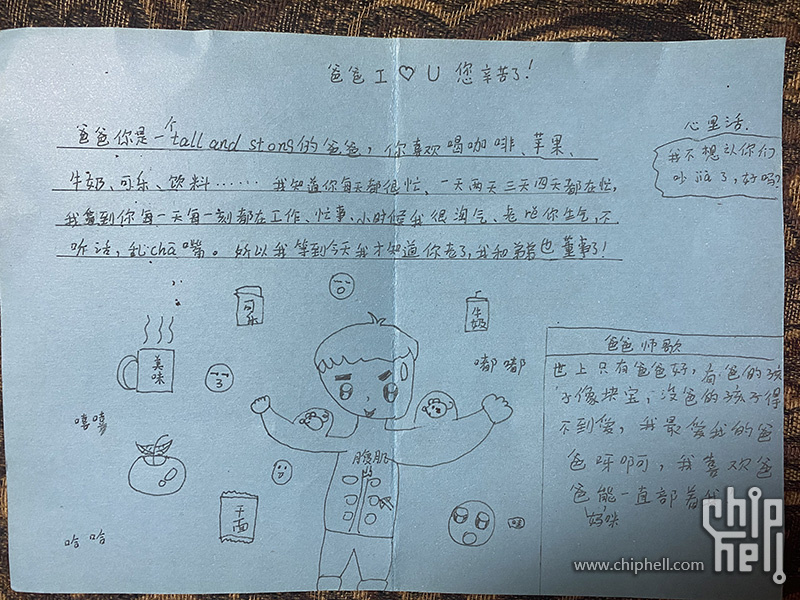 爸爸 I ♡ U 您辛苦了!
爸爸你是一个tall and stong的爸爸，你喜欢喝咖啡、苹果、
牛奶、可乐、饮料…… 我知道你每天都很忙、一天两天三天四天都在忙，
我看到你每一天每一刻都在工作、忙事、小时候我很淘气、老惹你生气，不
听话，乱chā嘴。所以我等到今天我才知道你老了，我和弟弟也董事了!
心里话.
我不想让你们
吵jià了，好吗?
可乐
牛奶
美味
嘟嘟
嘻嘻
腹肌
干面
哈哈
爸爸师歌
世上只有爸爸好，有爸的孩
子像块宝，没爸的孩子得
不到爱，我最爱我的爸
爸呀啊可，我喜欢爸
爸能一直部着我
妈咪
chip
hell
www.chiphell.com